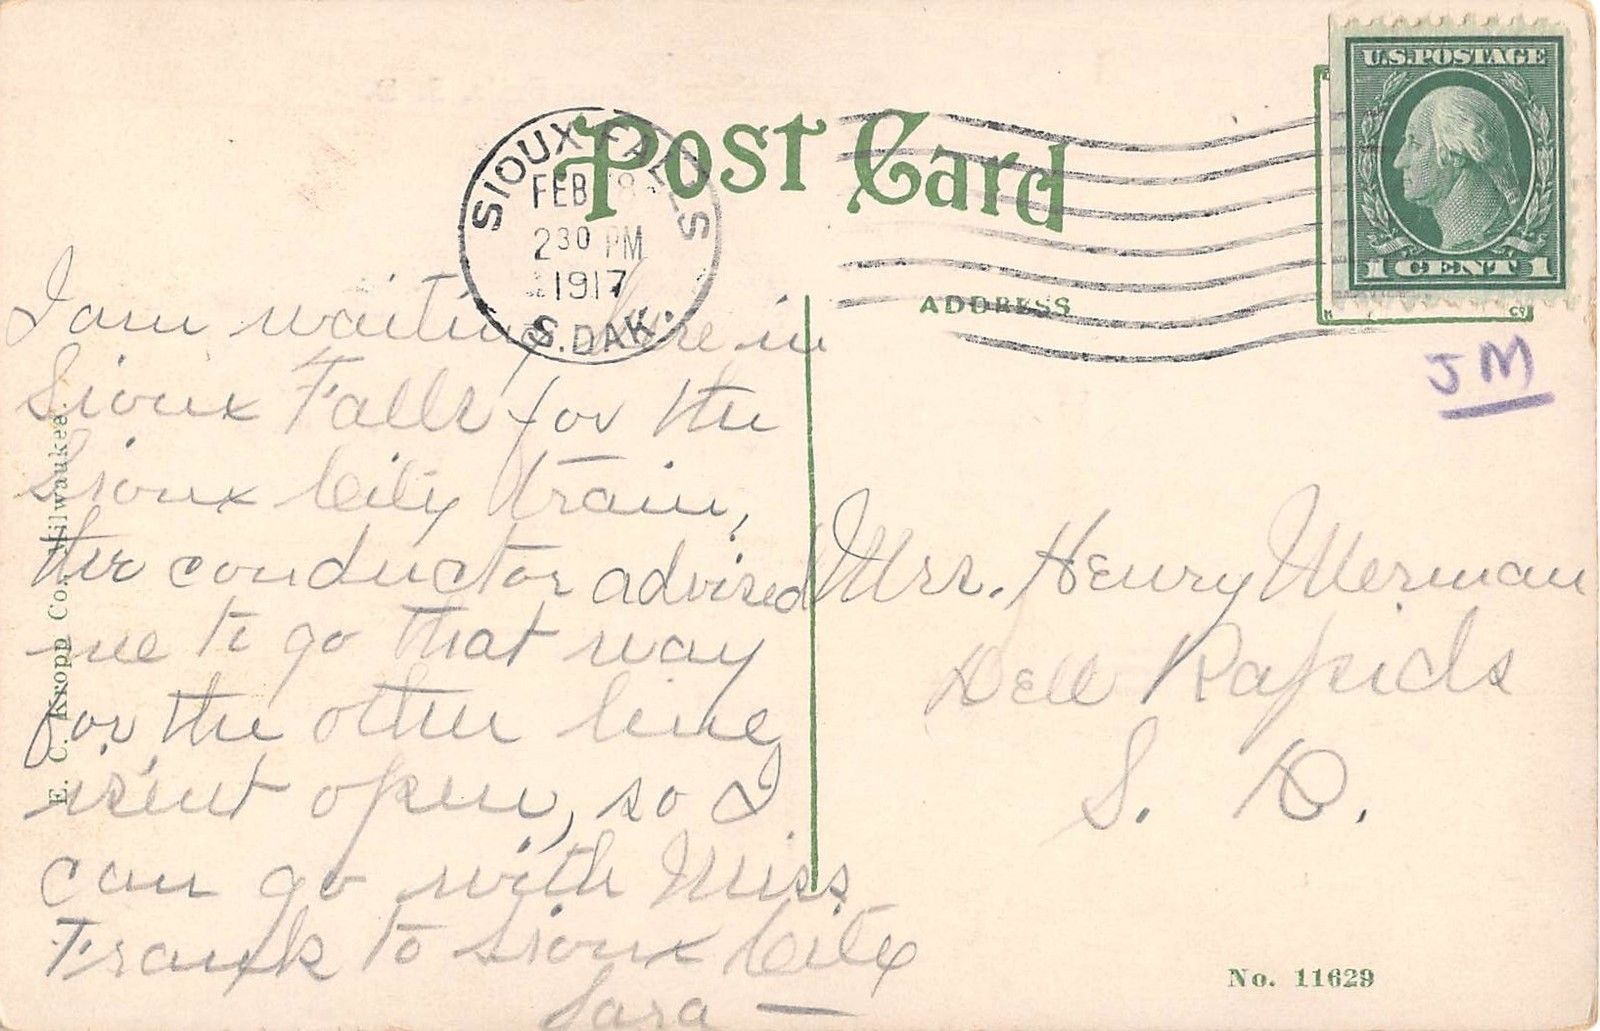 Post Card
SIOUX FALLS
FEB 8
2 30 PM
1917
S.DAK.
U.S. POSTAGE
1 CENT 1
ADDRESS
JM
I am waiting here in
Sioux Falls for the
Sioux City train,
the conductor advised
me to go that way
for the other line
isent open, so I
can go with Miss
Frank to Sioux City
Sara —
Mrs. Henry Merman
Dell Rapids
S. D.
E. C. Kropp Co., Milwaukee.
No. 11629